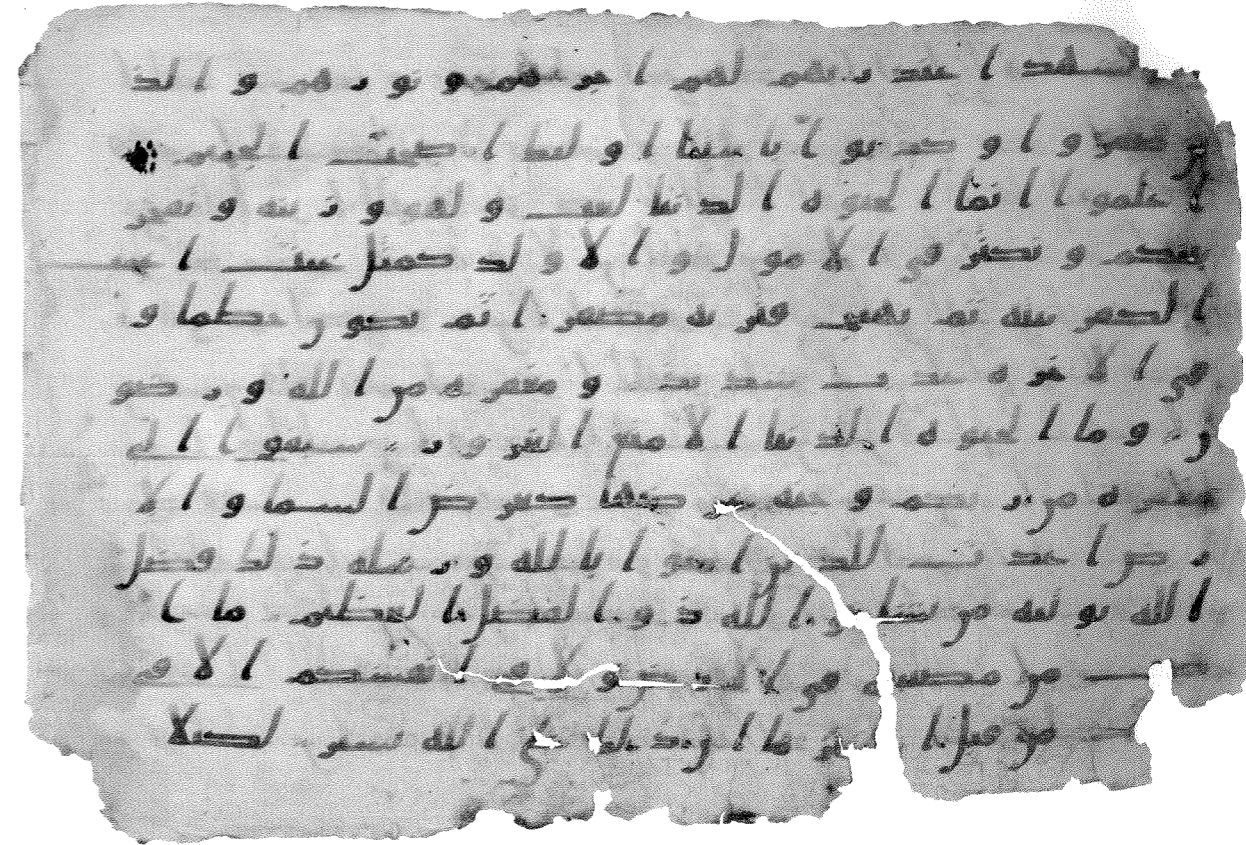 والشهدا عند ربهم لهم اجرهم ونورهم والذ
ين كفروا وكذبوا بايتنا اولئك اصحب الجحيم
اعلموا انما الحيوه الدنيا لعب ولهو وزينه وتفخر
بينكم وتكثر في الامول والاولد كمثل غيث اعجب
الكفر نبته ثم يهيج فتريه مصفرا ثم يكون حطما و
في الاخره عذب شديد ومغفره من الله ورضو
ن وما الحيوه الدنيا الا متع الغرور سبقوا الى
مغفره من ربكم وجنه عرضها كعرض السما والا
رض اعدت للذين امنوا بالله ورسله ذلك فضل
الله يوتيه من يشا والله ذو الفضل العظيم ما ا
صب من مصيبه في الارض ولا في انفسكم الا في
كتب من قبل ان ذلك على الله يسير لكيلا